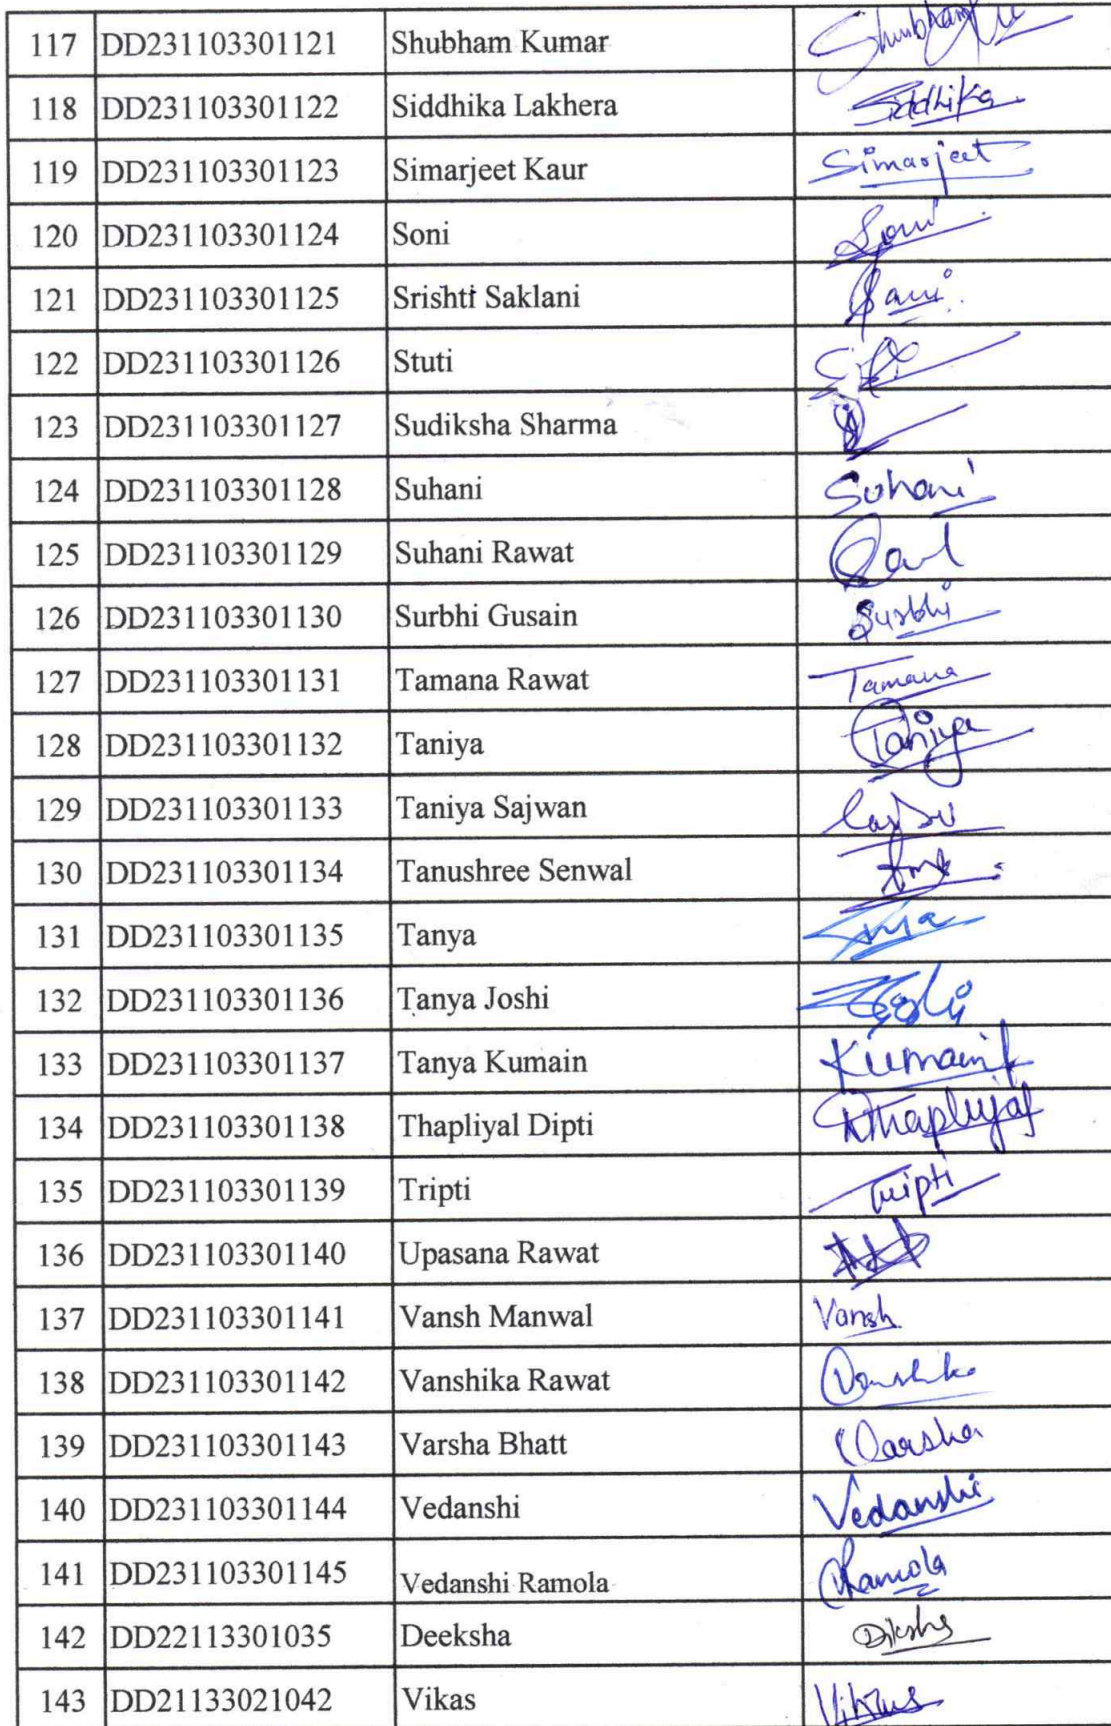 117 DD231103301121 Shubham Kumar Shubham
118 DD231103301122 Siddhika Lakhera Siddhika
119 DD231103301123 Simarjeet Kaur Simarjeet
120 DD231103301124 Soni Soni
121 DD231103301125 Srishti Saklani
122 DD231103301126 Stuti
123 DD231103301127 Sudiksha Sharma
124 DD231103301128 Suhani Suhani
125 DD231103301129 Suhani Rawat
126 DD231103301130 Surbhi Gusain Surbhi
127 DD231103301131 Tamana Rawat Tamana
128 DD231103301132 Taniya Taniya
129 DD231103301133 Taniya Sajwan
130 DD231103301134 Tanushree Senwal
131 DD231103301135 Tanya
132 DD231103301136 Tanya Joshi
133 DD231103301137 Tanya Kumain Kumain
134 DD231103301138 Thapliyal Dipti
135 DD231103301139 Tripti Tripti
136 DD231103301140 Upasana Rawat
137 DD231103301141 Vansh Manwal Vansh
138 DD231103301142 Vanshika Rawat Vanshika
139 DD231103301143 Varsha Bhatt Varsha
140 DD231103301144 Vedanshi Vedanshi
141 DD231103301145 Vedanshi Ramola Ramola
142 DD22113301035 Deeksha Diksha
143 DD21133021042 Vikas Vikas